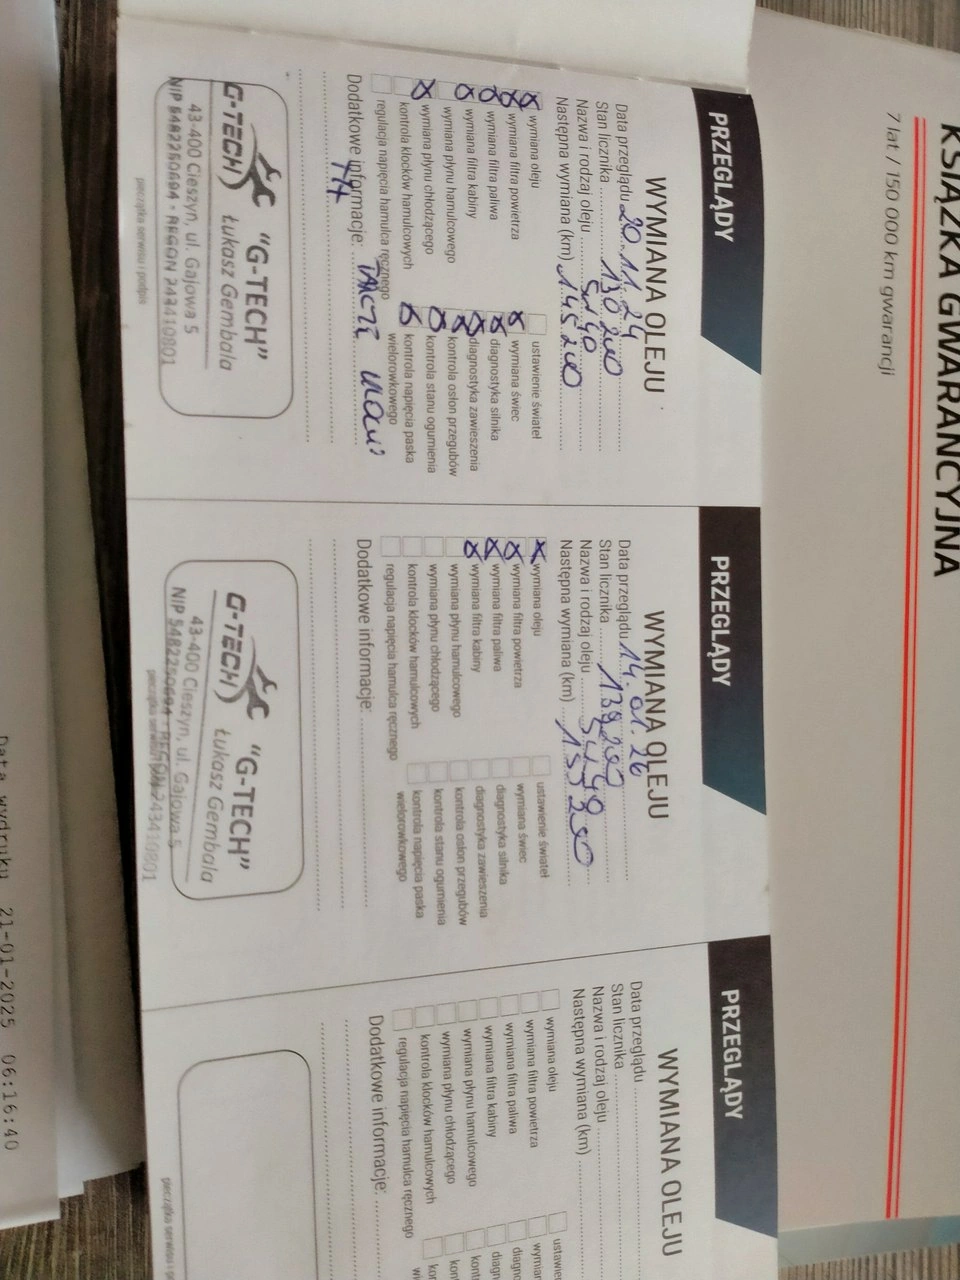 KSIĄŻKA GWARANCYJNA
7 lat / 150 000 km gwarancji
PRZEGLĄDY
WYMIANA OLEJU
Data przeglądu 20.11.24
Stan licznika 130 200
Nazwa i rodzaj oleju 5w40
Następna wymiana (km) 145 200
wymiana oleju
wymiana filtra powietrza
wymiana filtra paliwa
wymiana filtra kabiny
wymiana płynu hamulcowego
wymiana płynu chłodzącego
kontrola klocków hamulcowych
regulacja napięcia hamulca ręcznego
ustawienie świateł
wymiana świec
diagnostyka silnika
diagnostyka zawieszenia
kontrola osłon przegubów
kontrola stanu ogumienia
kontrola napięcia paska
wielorowkowego
Dodatkowe informacje:
G-TECH
"G-TECH"
Łukasz Gembala
43-400 Cieszyn, ul. Gajowa 5
NIP 5482250694 - REGON 243410801
pieczątka serwisu i podpis
PRZEGLĄDY
WYMIANA OLEJU
Data przeglądu 14.01.26
Stan licznika
Nazwa i rodzaj oleju
Następna wymiana (km)
wymiana oleju
wymiana filtra powietrza
wymiana filtra paliwa
wymiana filtra kabiny
wymiana płynu hamulcowego
wymiana płynu chłodzącego
kontrola klocków hamulcowych
regulacja napięcia hamulca ręcznego
ustawienie świateł
wymiana świec
diagnostyka silnika
diagnostyka zawieszenia
kontrola osłon przegubów
kontrola stanu ogumienia
kontrola napięcia paska
wielorowkowego
Dodatkowe informacje:
G-TECH
"G-TECH"
Łukasz Gembala
43-400 Cieszyn, ul. Gajowa 5
NIP 5482250694 - REGON 243410801
pieczątka serwisu
PRZEGLĄDY
WYMIANA OLEJU
Data przeglądu
Stan licznika
Nazwa i rodzaj oleju
Następna wymiana (km)
wymiana oleju
wymiana filtra powietrza
wymiana filtra paliwa
wymiana filtra kabiny
wymiana płynu hamulcowego
wymiana płynu chłodzącego
kontrola klocków hamulcowych
regulacja napięcia hamulca ręcznego
Dodatkowe informacje:
pieczątka serwisu i
Data wydruku 21-01-2025 06:16:40